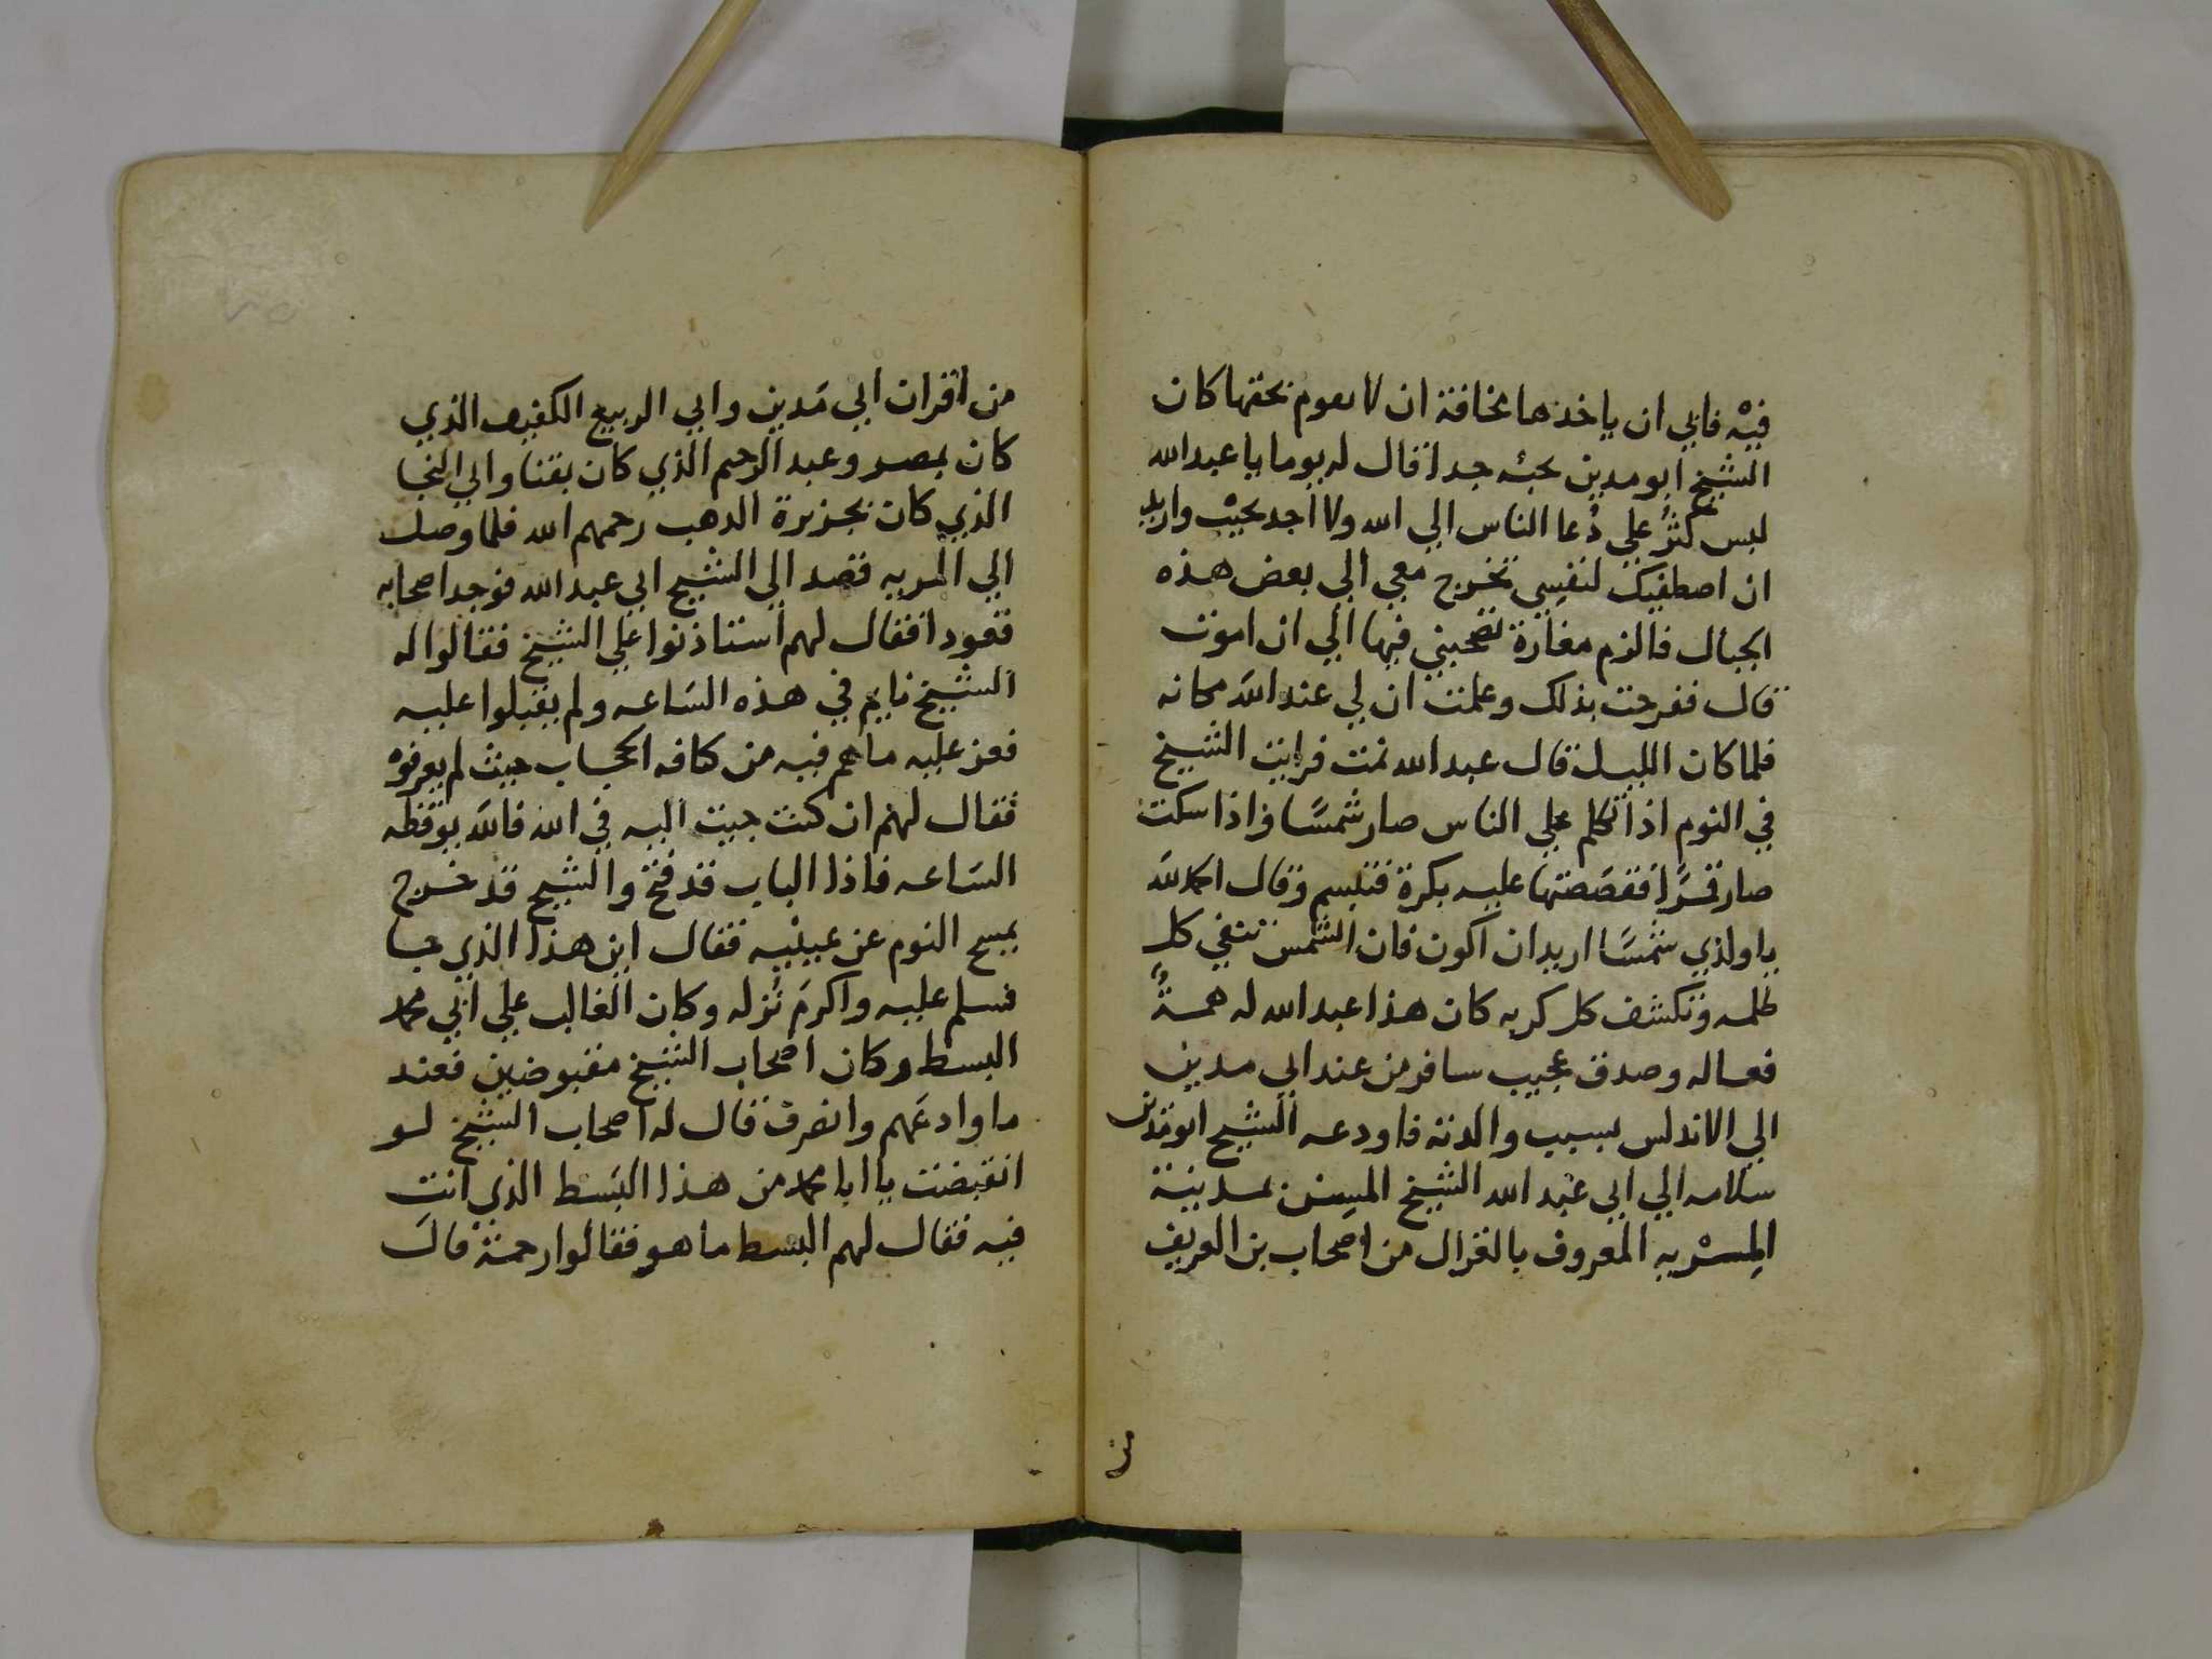 فيه فابي ان ياخذها مخافة ان لا يقوم بحقها كان
الشيخ ابو مدين يحبه جدا قال له يوما يا عبد الله
ليس كثر علي دُعا الناس الي الله ولا اجد يجيب واريد
ان اصطفيك لنفسي تخرج معي الي بعض هذه
الجبال فالزم مغارة تصحبني فيها الي ان اموت
قال ففرحت بذلك وعلمت ان لي عند الله مكانه
فلما كان الليل قال عبد الله نمت فرايت الشيخ
في النوم اذا تكلم علي الناس صار شمسًا واذا سكت
صار قمرًا فقصصتها عليه بكرة فتبسم وقال الحمد لله
يا ولدي شمسًا اريد ان اكون فان الشمس تنفي كل
ظلمه وتكشف كل كربه كان هذا عبد الله له همةٌ
فعاله وصدق عجيب سافر من عند ابي مدين
الي الاندلس بسبب والدته فاودعه الشيخ ابو مدين
سلامه الي ابي عبد الله الشيخ المسِن بمدينة
المِسْريه المعروف بالغزال من اصحاب بن العريف
من
من اقران ابي مَدين وابي الربيع الكفيف الذي
كان بمصر وعبد الرحيم الذي كان بقنا وابي النجا
الذي كان بجزيرة الدهب رحمهم الله فلما وصل
الي المريه قصد الي الشيخ ابي عبد الله فوجد اصحابه
قعودا فقال لهم استاذنوا علي الشيخ فقالوا له
الشيخ نايم في هذه السَاعه ولم يقبلوا عليه
فعز عليه ما هم فيه من كافه الحجاب حيث لم يعرفوه
فقال لهم ان كنت جيت اليه في الله فالله يوقظه
السَاعه فاذا الباب قد فتح والشيح قد خرج
يمسح النوم عن عينيه فقال اين هذا الذي جا
فسلم عليه واكرم نُزله وكان الغالب علي ابي محمد
البسط وكان اصحاب الشيخ مقبوضين فعند
ما وادعَهم وانصرف قال له اصحاب الشيخ لو
انقبضت يا ابا محمد من هذا البَسط الذي انت
فيه فقال لهم البسط ما هو فقالوا رحمة قال